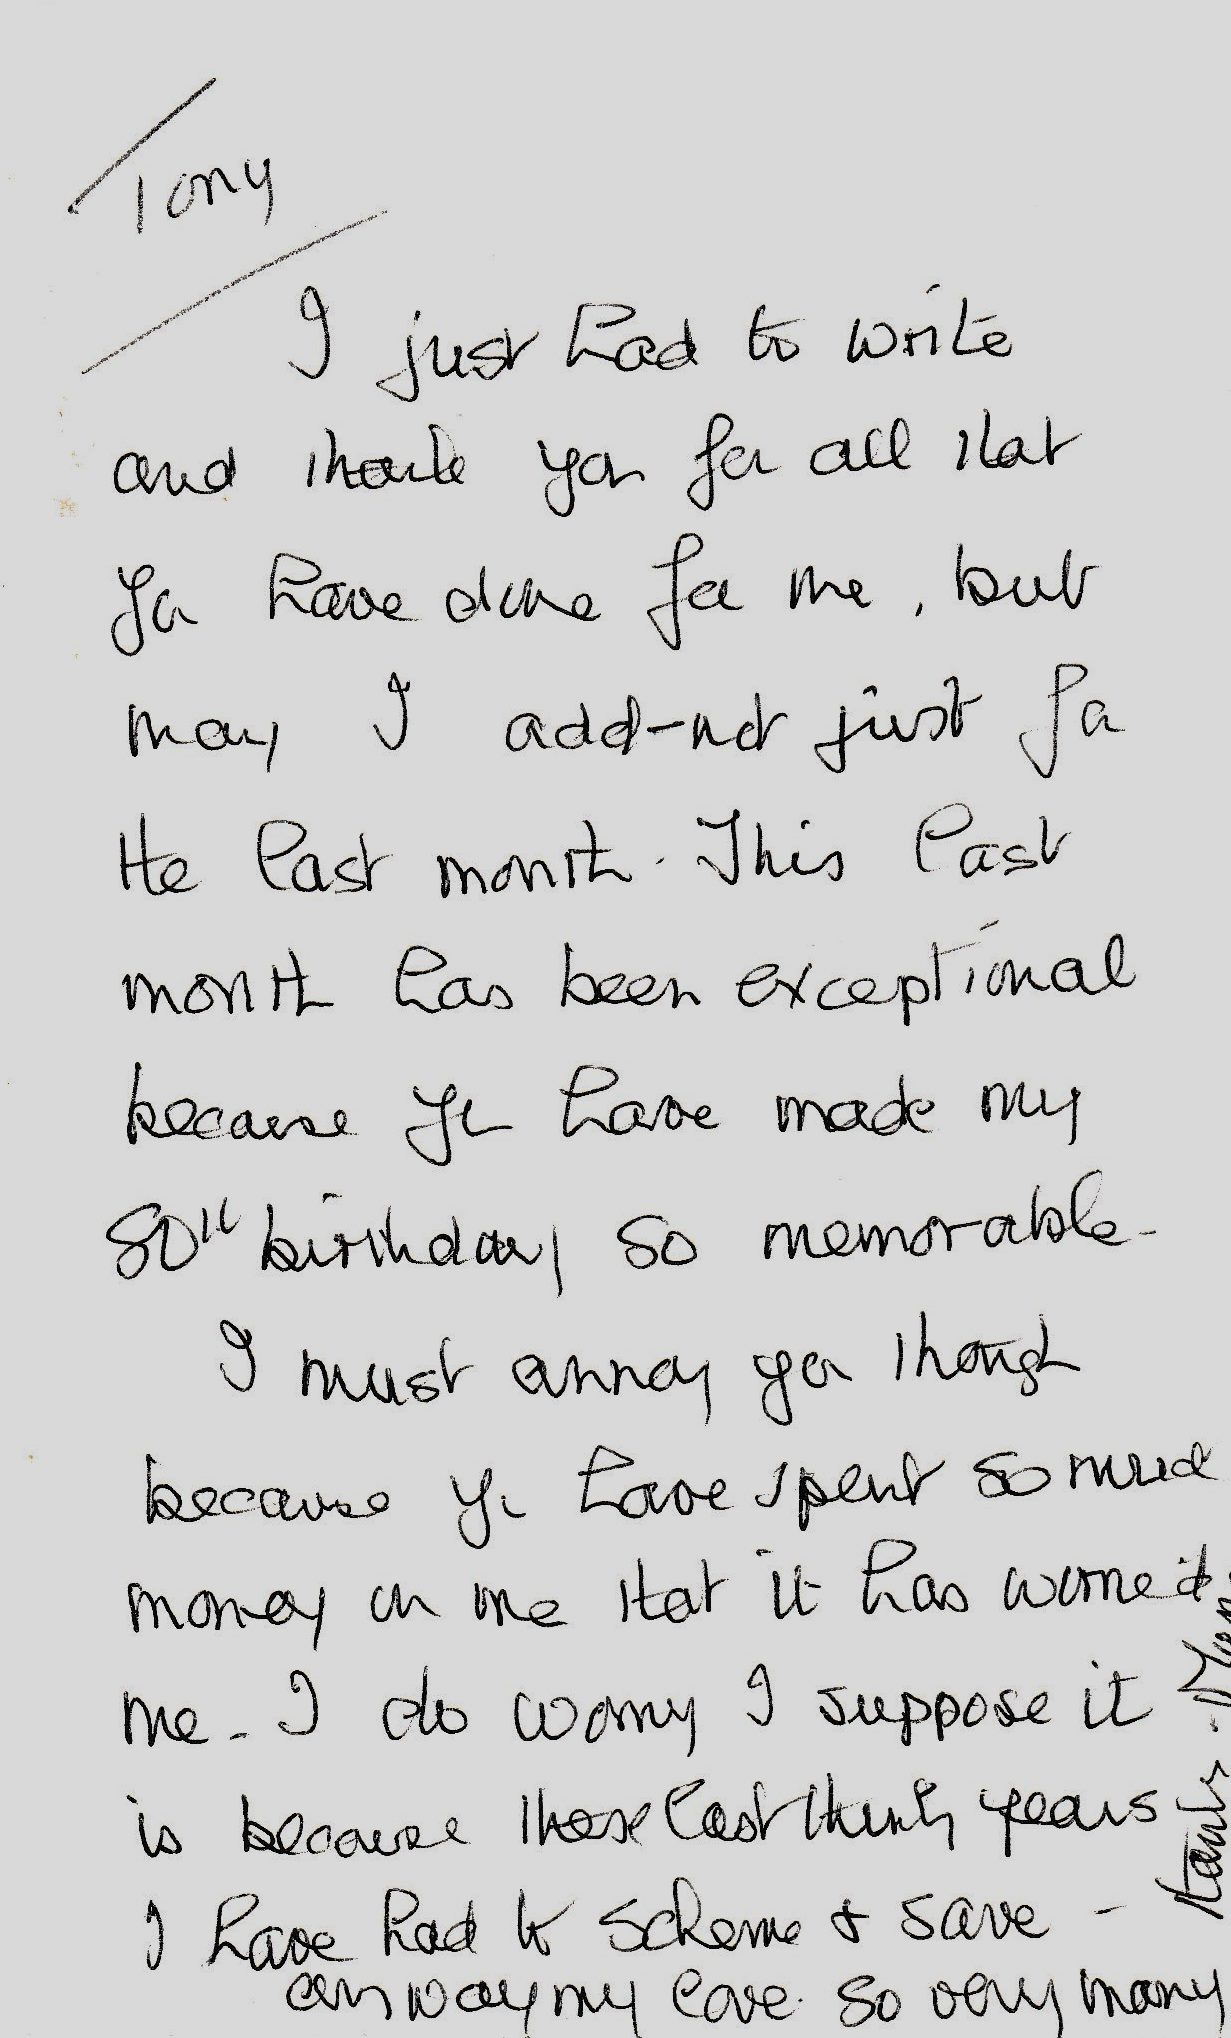 Tony
I just had to write
and thank you for all that
you have done for me, but
may I add-not just for
the last month. This last
month has been exceptional
because you have made my
80th birthday so memorable-
I must annoy you though
because you have spent so much
money on me that it has worried
me. I do worry I suppose it
is because these last thirty years
I have had to scheme & save -
anyway my love so very many
thanks. Mum